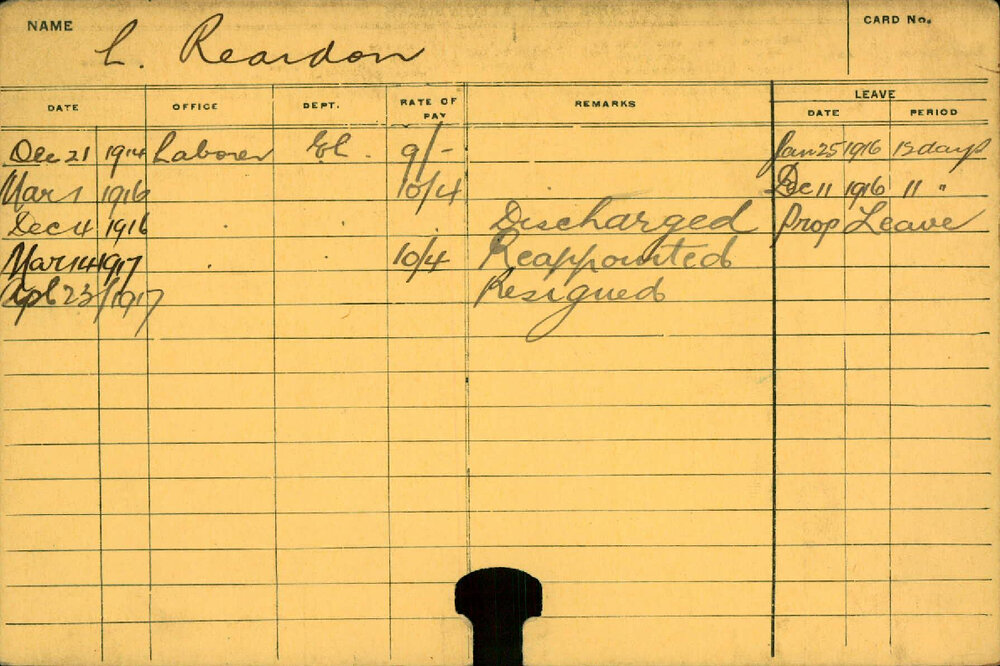 NAME L. Reardon CARD No.
DATE OFFICE DEPT. RATE OF PAY REMARKS LEAVE
DATE PERIOD
Dec 21 1914 Laborer El. 9/- Jan 25 1916 12 days
Mar 1 1916 10/4 Dec 11 1916 11 "
Dec 4 1916 Discharged Prop Leave
Mar 14 1917 10/4 Reappointed
Apl 23/1917 Resigned